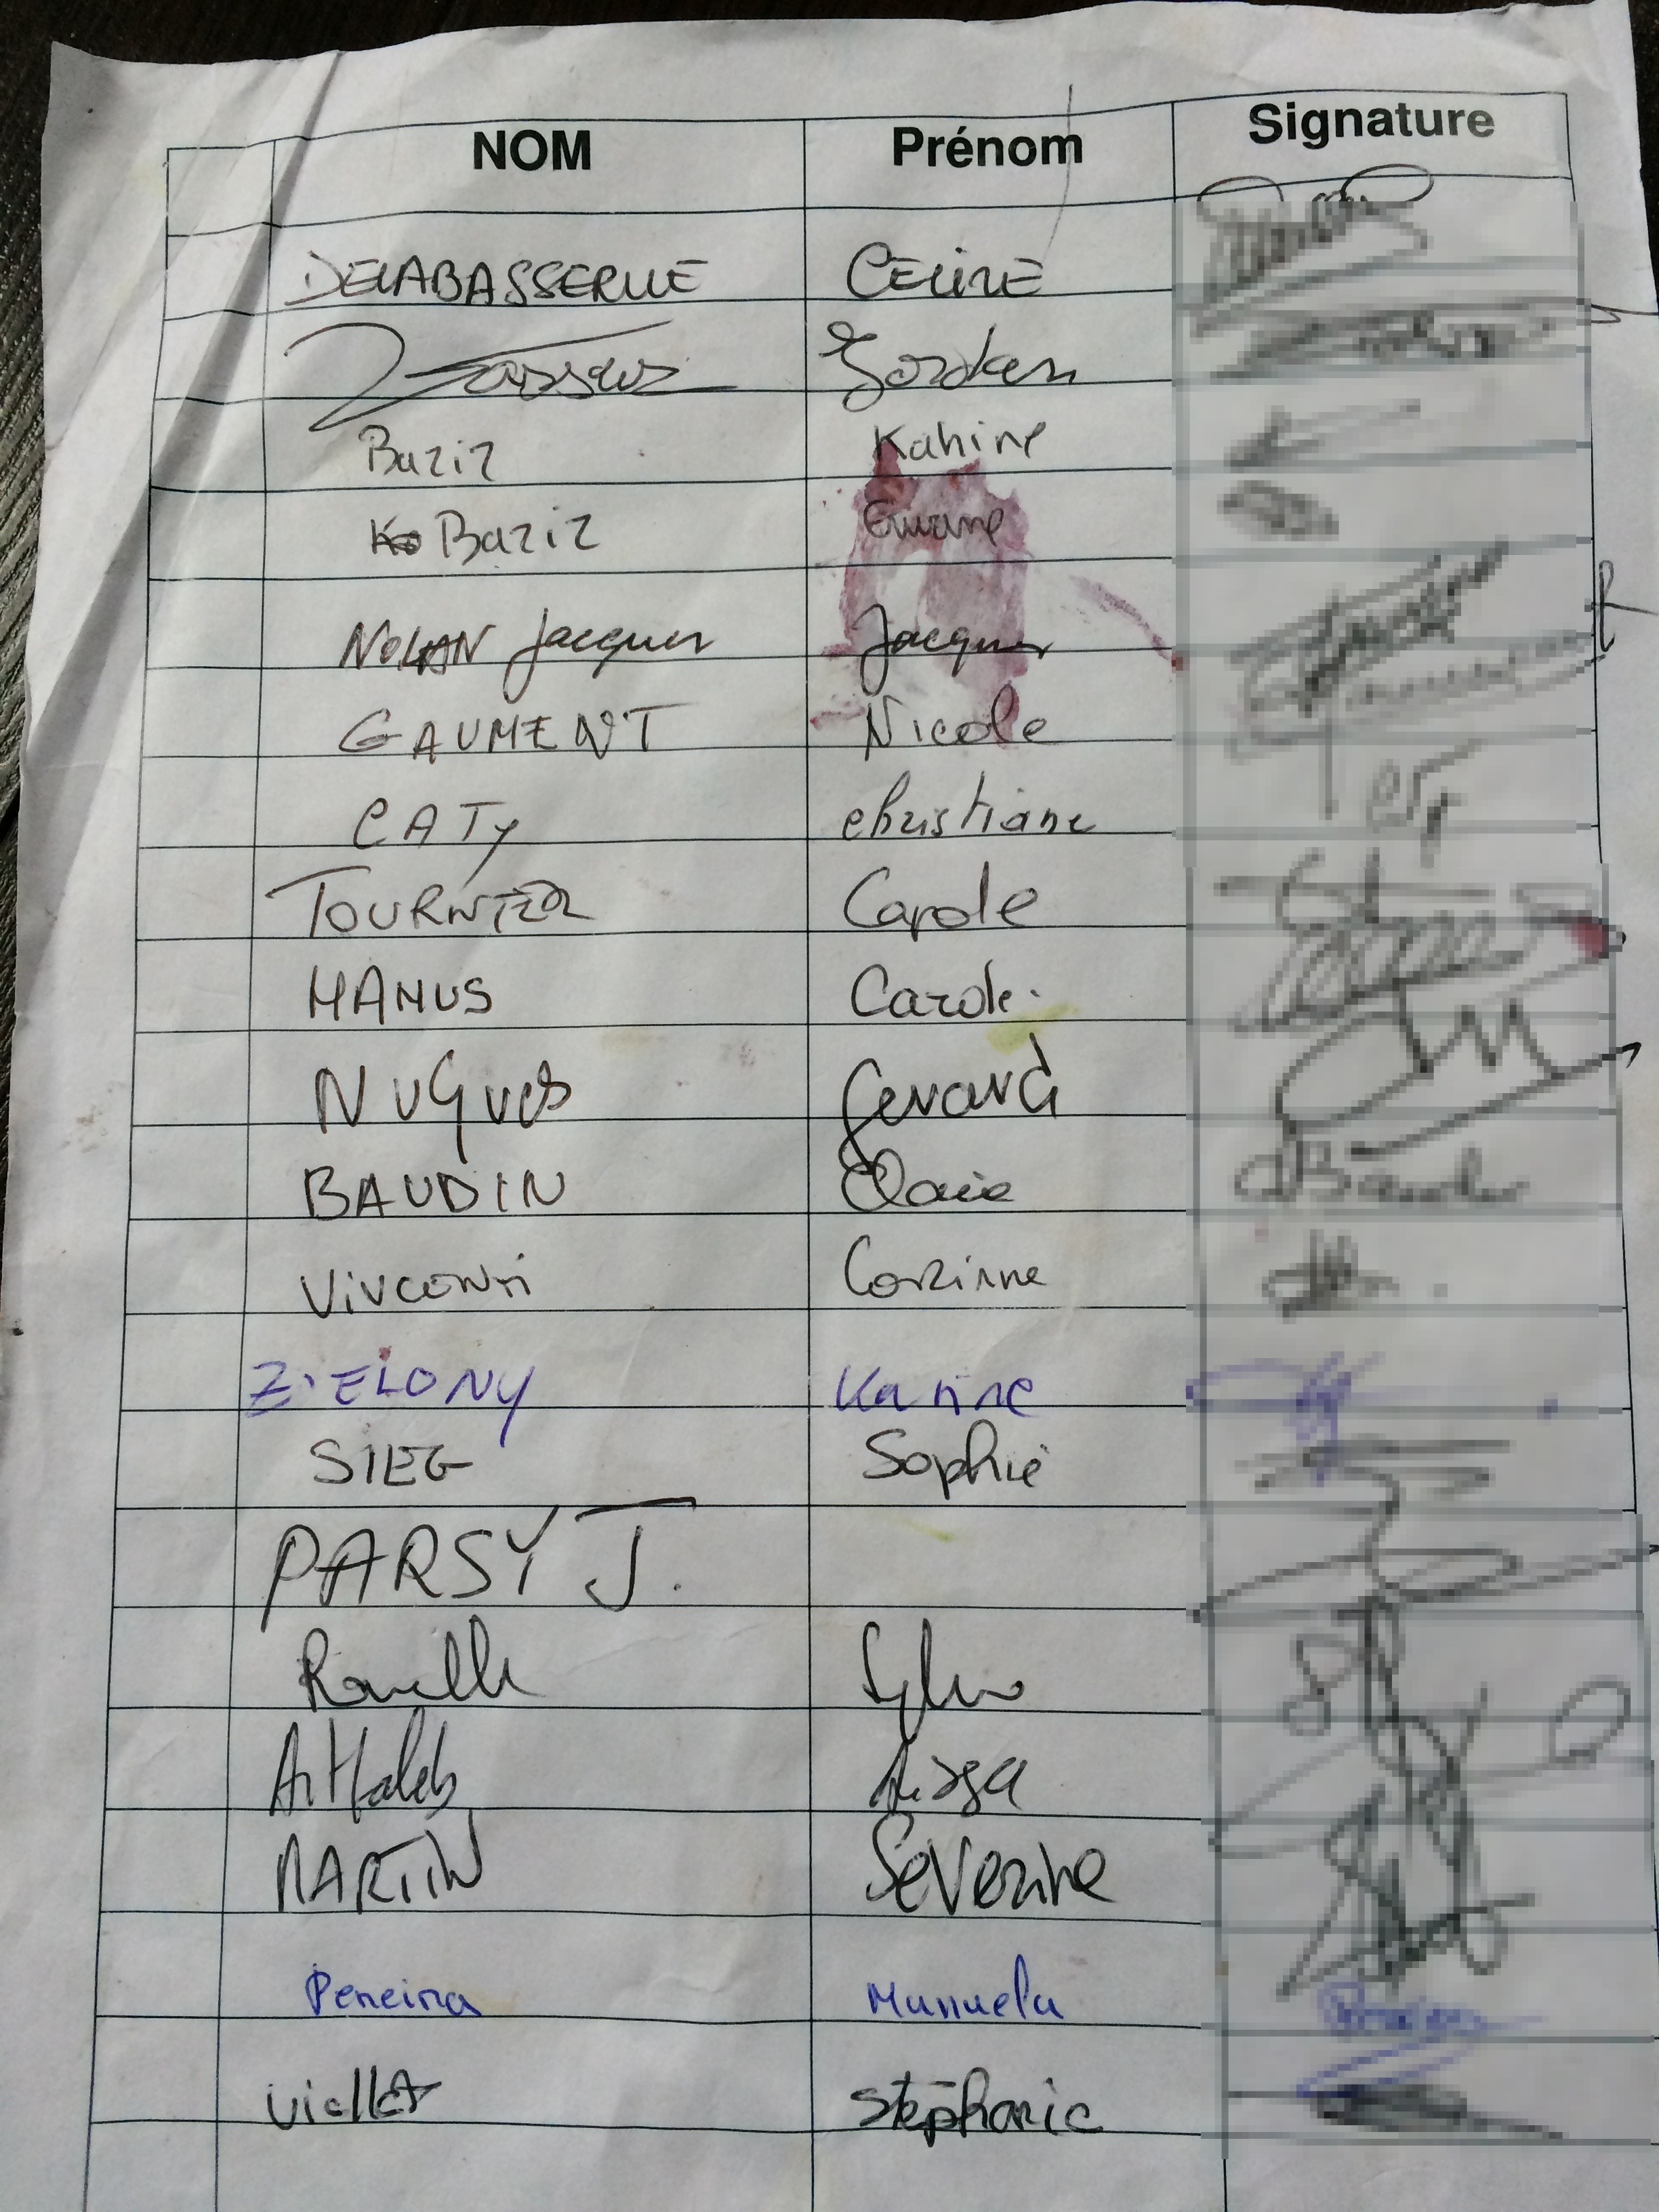 NOM Prénom Signature
DELABASSERUE CELINE
Jordan
Baziz Kahine
Baziz
NOLAN Jacques Jacques
GAUMENT Nicole
CATy christiane
TOURNIER Carole
MANUS Carole
NUGUES Gerard
BAUDIN Claire
Corinne
ZIELONY Karine
SIEG Sophie
PARSY J.
Sylvie
MARTIN Severine
Pereira Manuela
Viallet Stéphanie